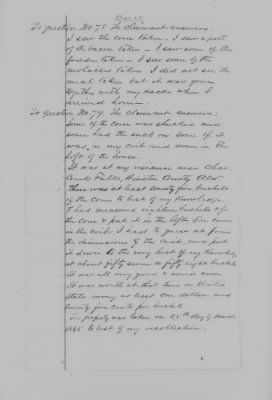 To question No. 78 The Claimant answers:
I saw the corn taken. I saw a part
of the bacon taken. I saw some of the
fodder taken. I saw some of the
molasses taken. I did not see the
meal taken but it was gone
together with my sacks when I
arrived home.
To question No. 79. The Claimant answers:
Some of the corn was shucked and
some had the shuck on some of it
was in my crib and some in the
loft of the house.
It was at my residence near
Creek Falls, County Ala.
There was at least seventy five bushels
of the Corn to best of my Knowledge.
I had measured eighteen bushels of
the Corn & put it in the loft. The corn
in the crib I had to guess at from
the dimensions of the Crib, and put
it down to the very best of my Knowledge
at about fifty seven or fifty eight bushels
It was all very good & sound corn
It was worth at that time in United
States money at least one dollar and
twenty five cents per bushel.
property was taken on day of March
1865 to best of my recollection.